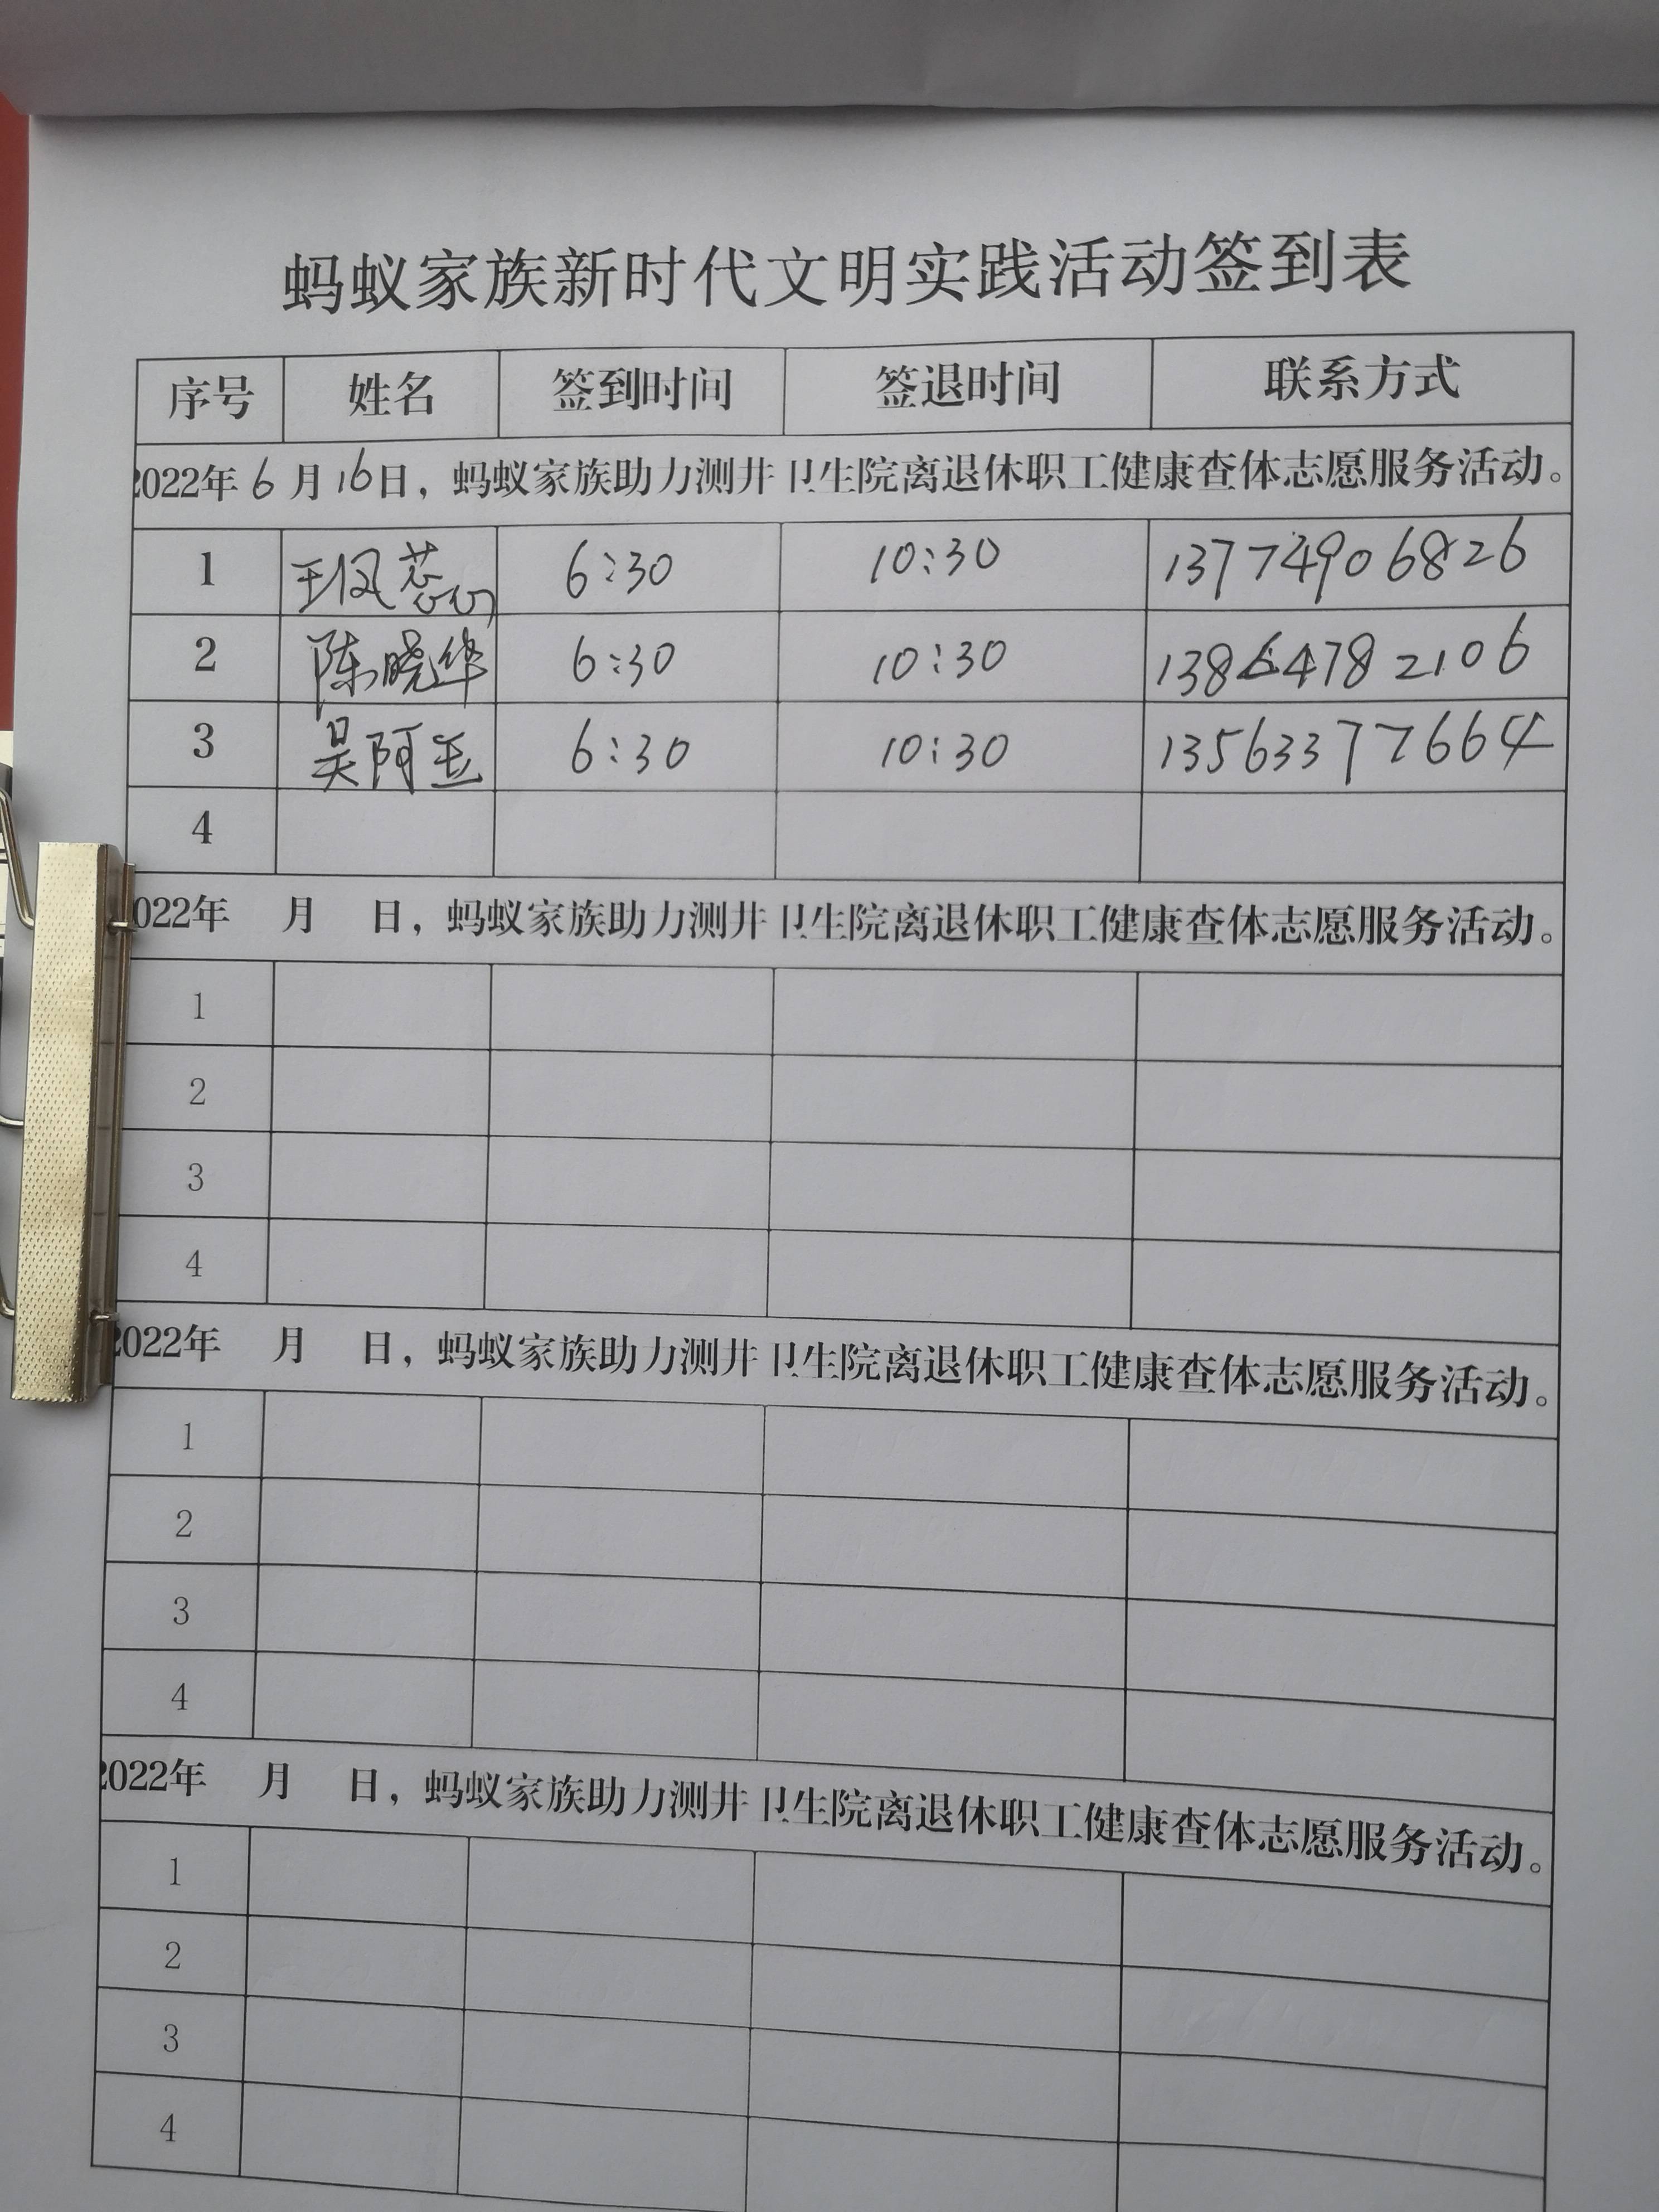 蚂蚁家族新时代文明实践活动签到表
序号 姓名 签到时间 签退时间 联系方式
2022年6月16日，蚂蚁家族助力测井卫生院离退休职工健康查体志愿服务活动。
1 王凤蕊 6:30 10:30 13774906826
2 陈晓华 6:30 10:30 13864782106
3 吴阿玉 6:30 10:30 13563377664
4
2022年 月 日，蚂蚁家族助力测井卫生院离退休职工健康查体志愿服务活动。
1
2
3
4
2022年 月 日，蚂蚁家族助力测井卫生院离退休职工健康查体志愿服务活动。
1
2
3
4
2022年 月 日，蚂蚁家族助力测井卫生院离退休职工健康查体志愿服务活动。
1
2
3
4